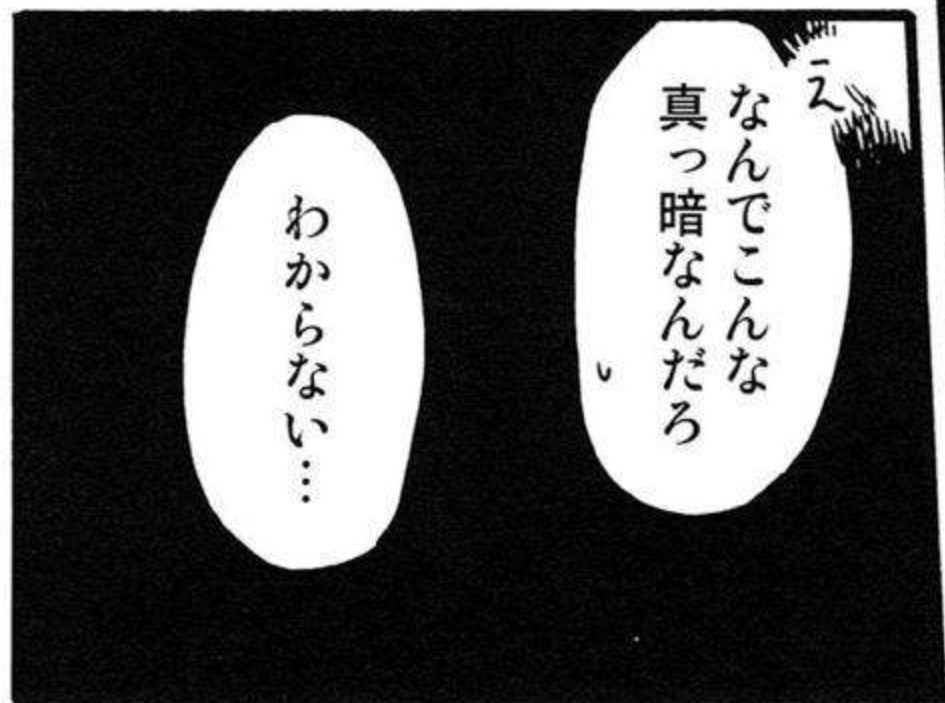 え
なんでこんな
真っ暗なんだろ
わからない…